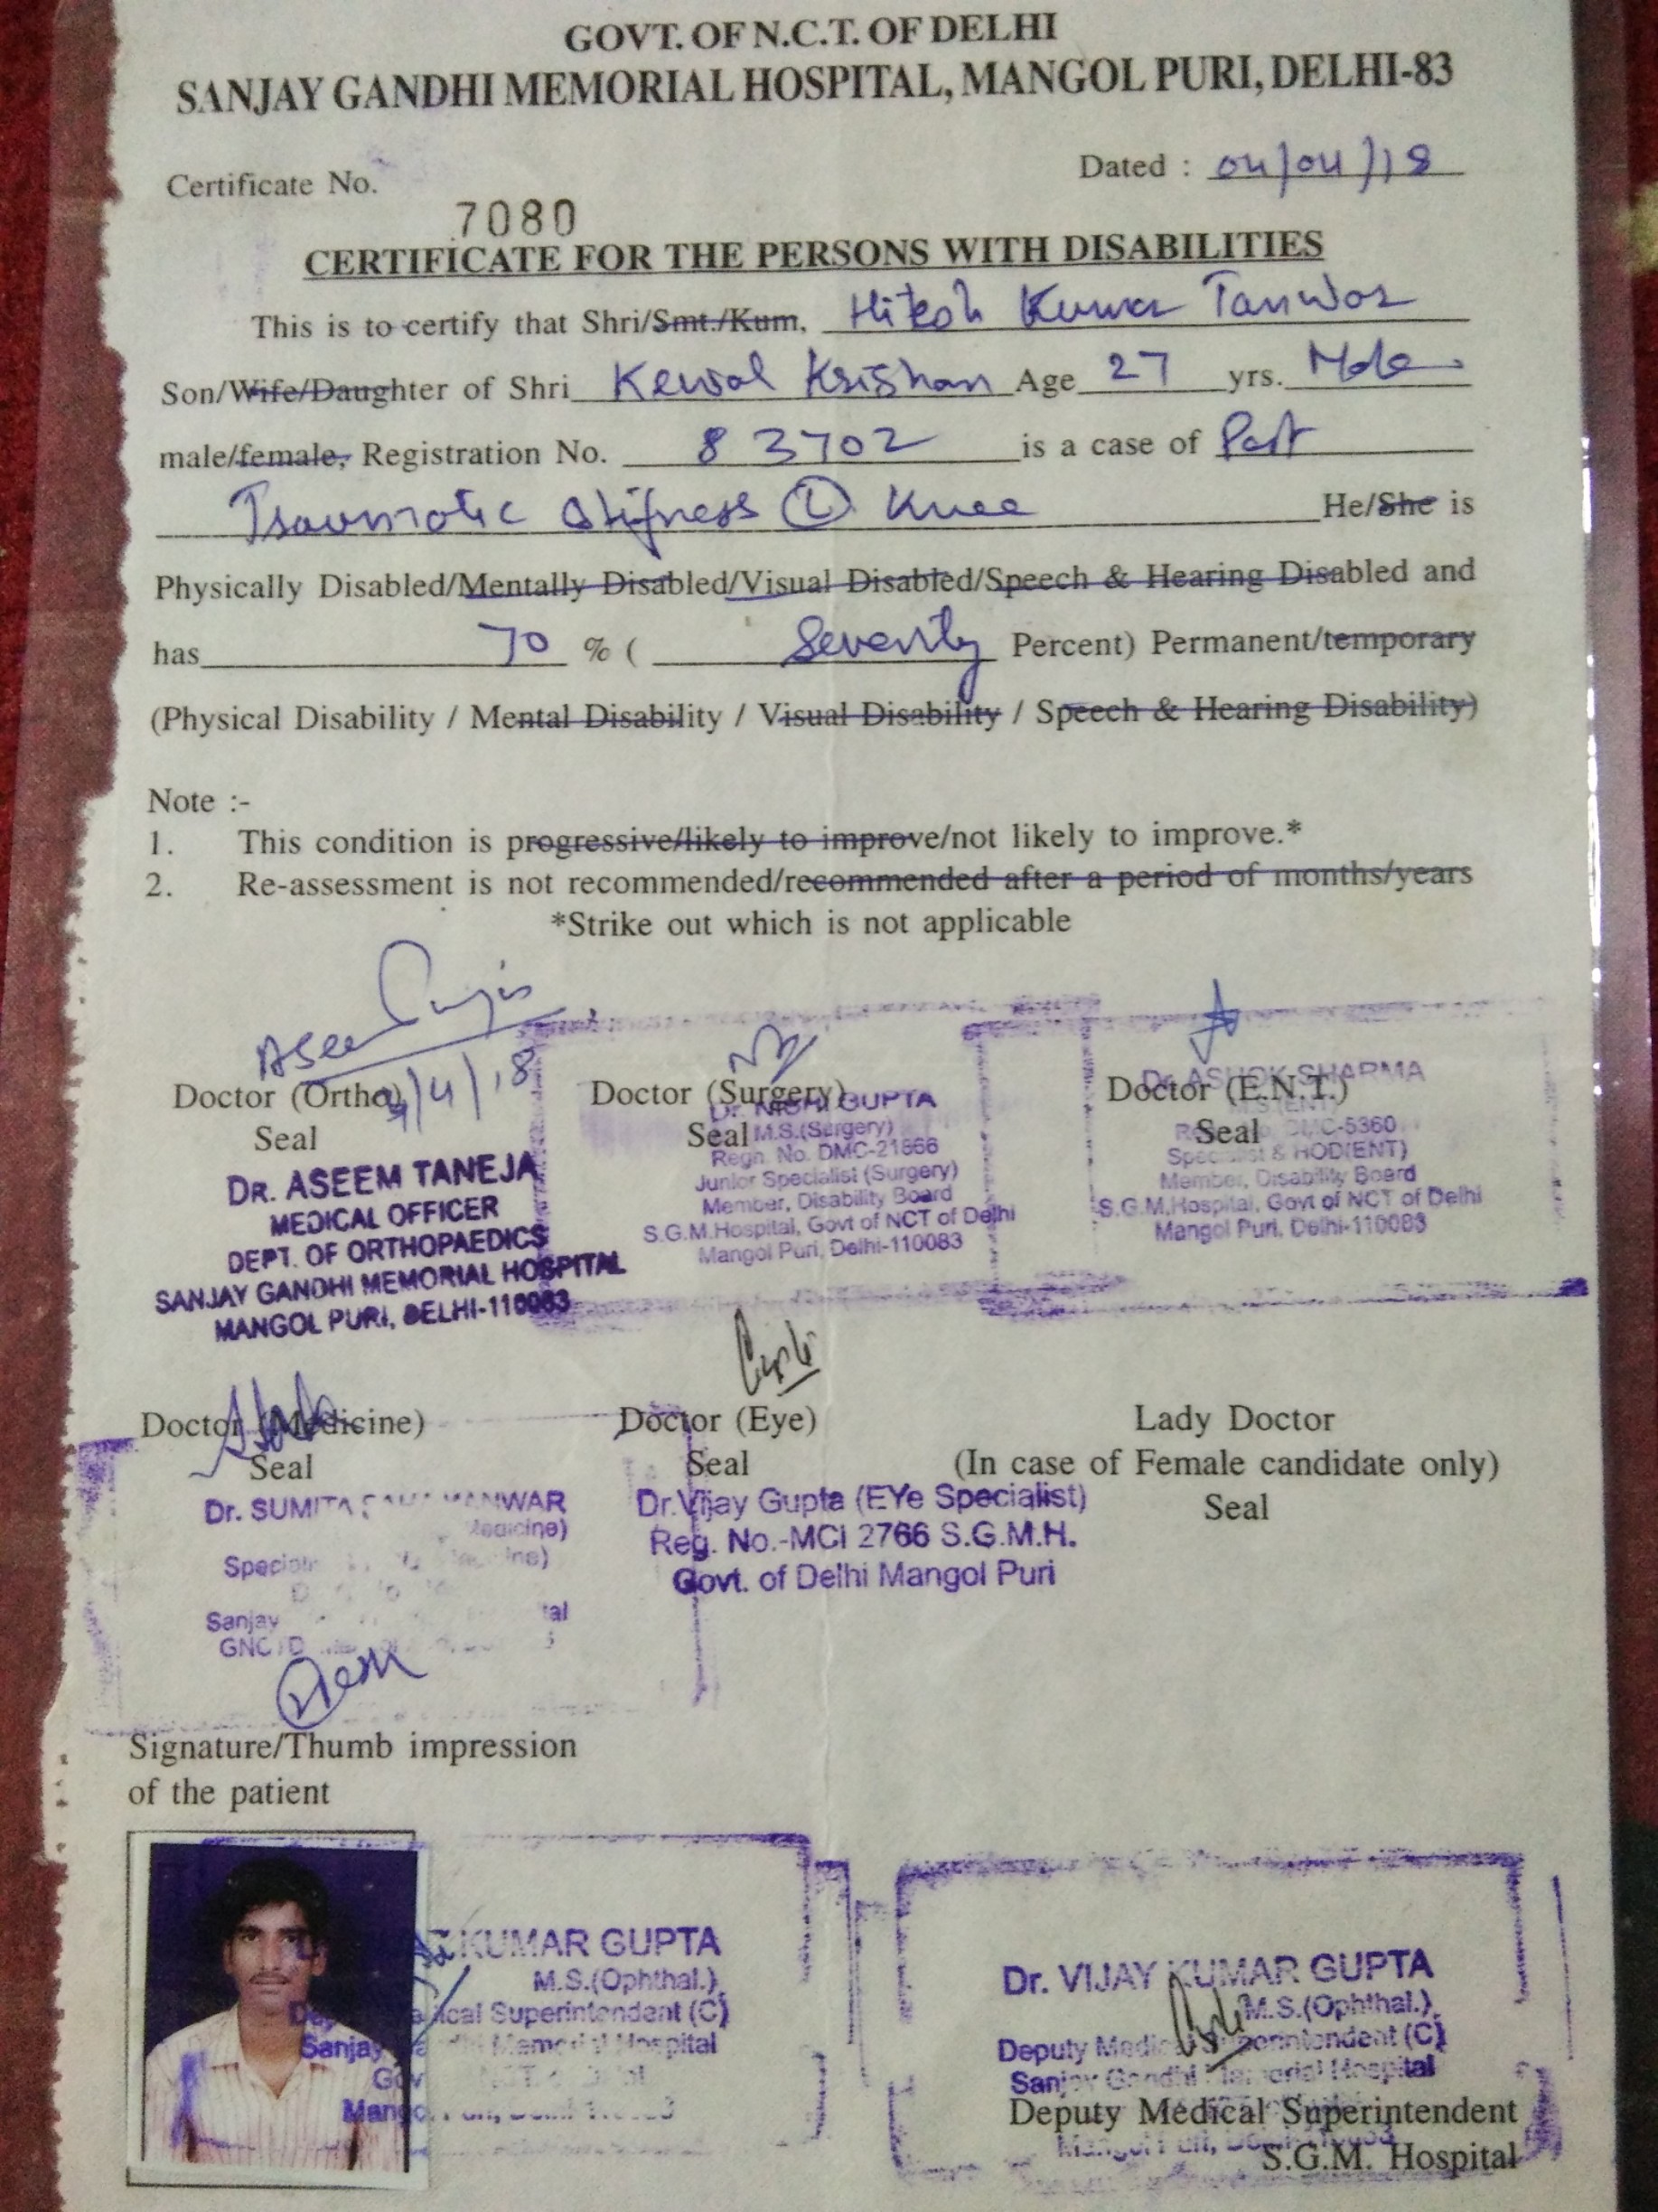 GOVT. OF N.C.T. OF DELHI
SANJAY GANDHI MEMORIAL HOSPITAL, MANGOL PURI, DELHI-83
Certificate No.
Dated : 04/04/18
7080
CERTIFICATE FOR THE PERSONS WITH DISABILITIES
This is to certify that Shri/Smt./Kum. Hitesh Kumar Tanwar
Son/Wife/Daughter of Shri Kewal Krishan Age 27 yrs. Male
male/female, Registration No. 83702 is a case of Post
Traumatic Stifness (L) Knee He/She is
Physically Disabled/Mentally Disabled/Visual Disabled/Speech & Hearing Disabled and
has 70 % ( Seventy Percent) Permanent/temporary
(Physical Disability / Mental Disability / Visual Disability / Speech & Hearing Disability)
Note :-
1. This condition is progressive/likely to improve/not likely to improve.*
2. Re-assessment is not recommended/recommended after a period of months/years
*Strike out which is not applicable
Aseem
4/4/18
Doctor (Ortho) Doctor (Surgery) Doctor (E.N.T.)
Seal Seal Seal
DR. ASEEM TANEJA
MEDICAL OFFICER
DEPT. OF ORTHOPAEDICS
SANJAY GANDHI MEMORIAL HOSPITAL
MANGOL PURI, DELHI-110083
Dr. NISHI GUPTA
M.S.(Surgery)
Regn. No. DMC-21866
Junior Specialist (Surgery)
Member, Disability Board
S.G.M.Hospital, Govt of NCT of Delhi
Mangol Puri, Delhi-110083
Dr. ASHOK SHARMA
M.S(ENT)
DMC-5360
Specialist & HOD(ENT)
Member, Disability Board
S.G.M.Hospital, Govt of NCT of Delhi
Mangol Puri, Delhi-110083
Doctor (Medicine) Doctor (Eye) Lady Doctor
Seal Seal (In case of Female candidate only)
Seal
Dr. SUMITA
Sanjay
Dr.Vijay Gupta (EYe Specialist)
Reg. No.-MCI 2766 S.G.M.H.
Govt. of Delhi Mangol Puri
Signature/Thumb impression
of the patient
KUMAR GUPTA
M.S.(Ophthal.)
Superintendent (C)
Sanjay Memorial Hospital
Dr. VIJAY KUMAR GUPTA
M.S.(Ophthal.)
Deputy Medical Superintendent (C)
Sanjay Gandhi Memorial Hospital
Deputy Medical Superintendent
S.G.M. Hospital